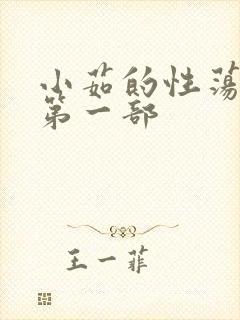 小茹的性荡
第一部
王一菲